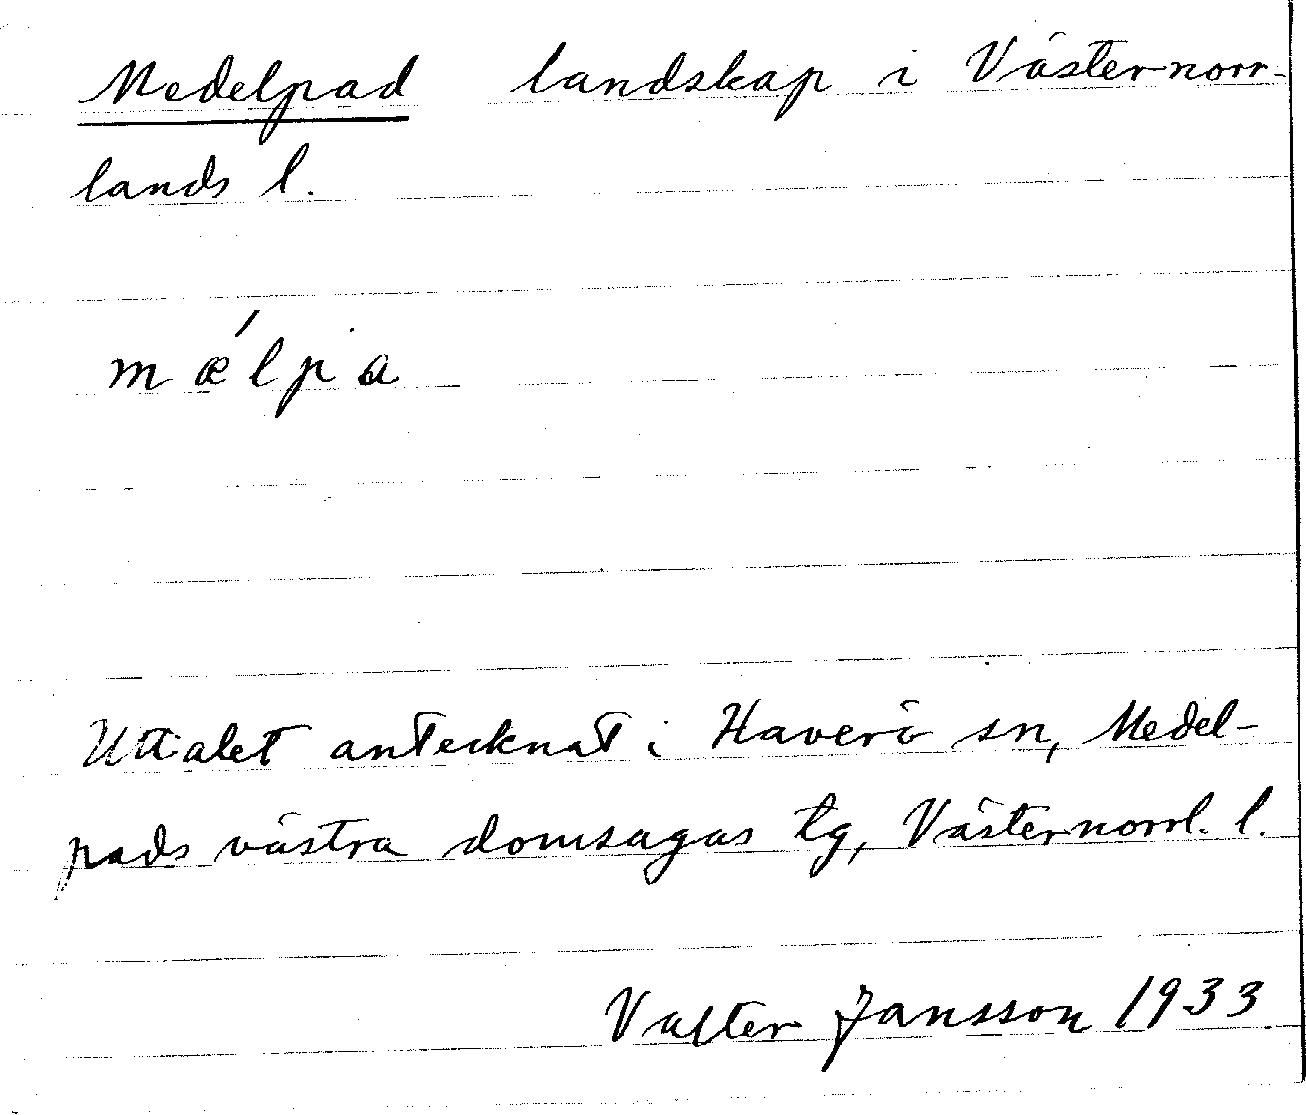 Medelpad landskap i Västernorr-
lands l.
mǽlpa
Uttalet antecknat i Haverö sn, Medel-
pads västra domsagas tg, Västernorrl. l.
Valter Jansson 1933.